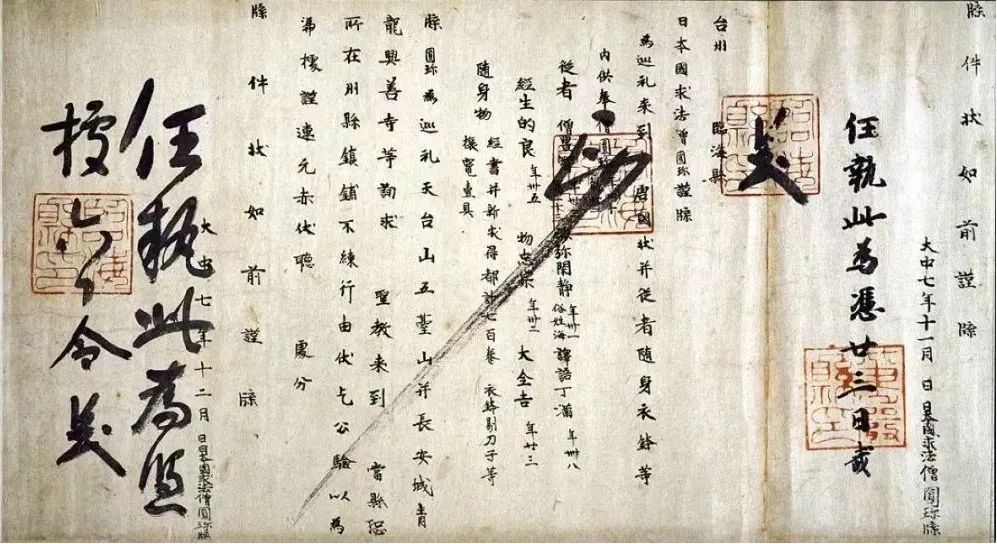 牒件状如前謹牒
大中七年十一月 日日本國求法僧圓珍牒
任執此為憑廿三日
台州 臨海縣
日本國求法僧圓珍謹牒
為巡礼来到 唐國状并従者随身衣鉢等
内供奉僧圓
従者 僧 沙弥閑静 年卅一 俗姓海 譯語丁滿 年卌八
經生的良 年卅五 物忠宗 年卅二 大全吉 年廿三
随身物 經書并新求得都計七百卷 衣鉢剔刀子等
竈壹具
牒圓珍為巡礼天台山五臺山并長安城青
龍興善寺等詢求 聖教来到 當縣恐
所在州縣鎮鋪不練行由伏乞公驗以為
憑據謹連元赤伏聽 處分
牒件状如前謹牒
大中七年十二月 日日本國求法僧圓珍牒
任執此為憑
據 令吳